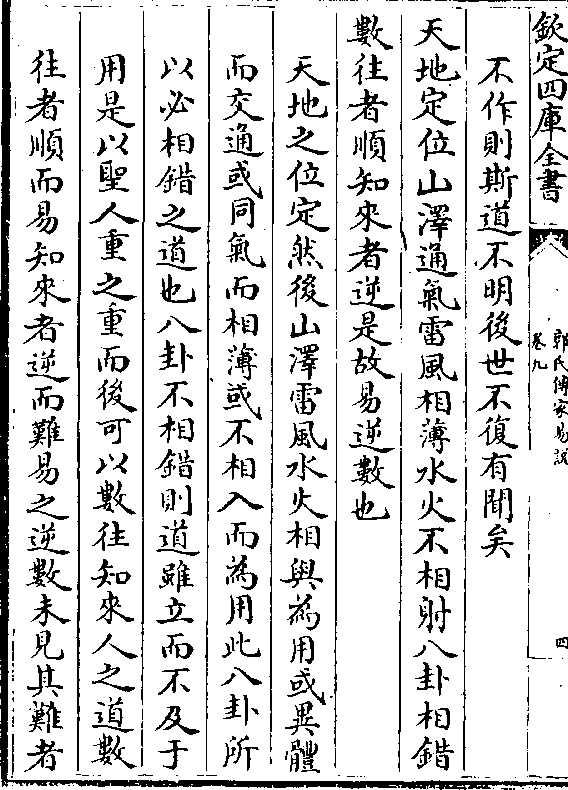 欽定四庫全書
郭氏傳家易説
卷九
四
不作則斯道不明後世不復有聞矣
天地定位山澤通氣雷風相薄水火不相射八卦相錯
數往者順知來者逆是故易逆數也
天地之位定然後山澤雷風水火相與為用或異體
而交通或同氣而相薄或不相入而為用此八卦所
以必相錯之道也八卦不相錯則道雖立而不及于
用是以聖人重之重而後可以數往知來人之道數
往者順而易知來者逆而難易之逆數未見其難者